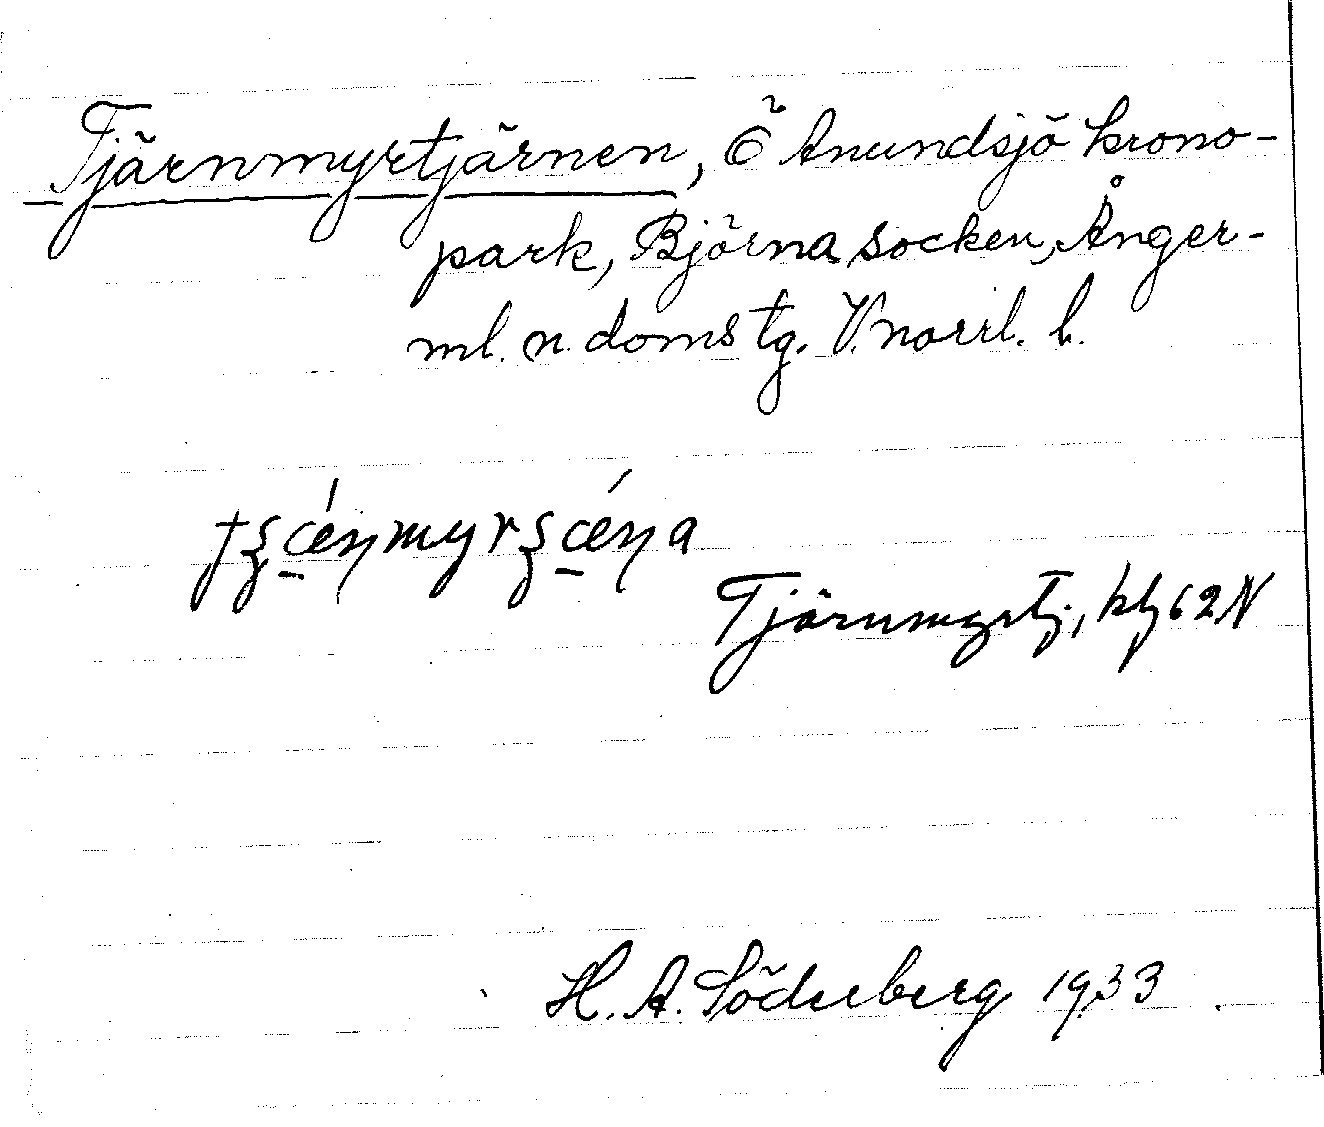 Tjärnmyrtjärnen, Ö Anundsjö krono-
park, Björna socken, Ånger-
ml. n. doms tg. V.norrl. l.
Tjärnmyrtj., kbl 62 N
H. A. Söderberg 1933